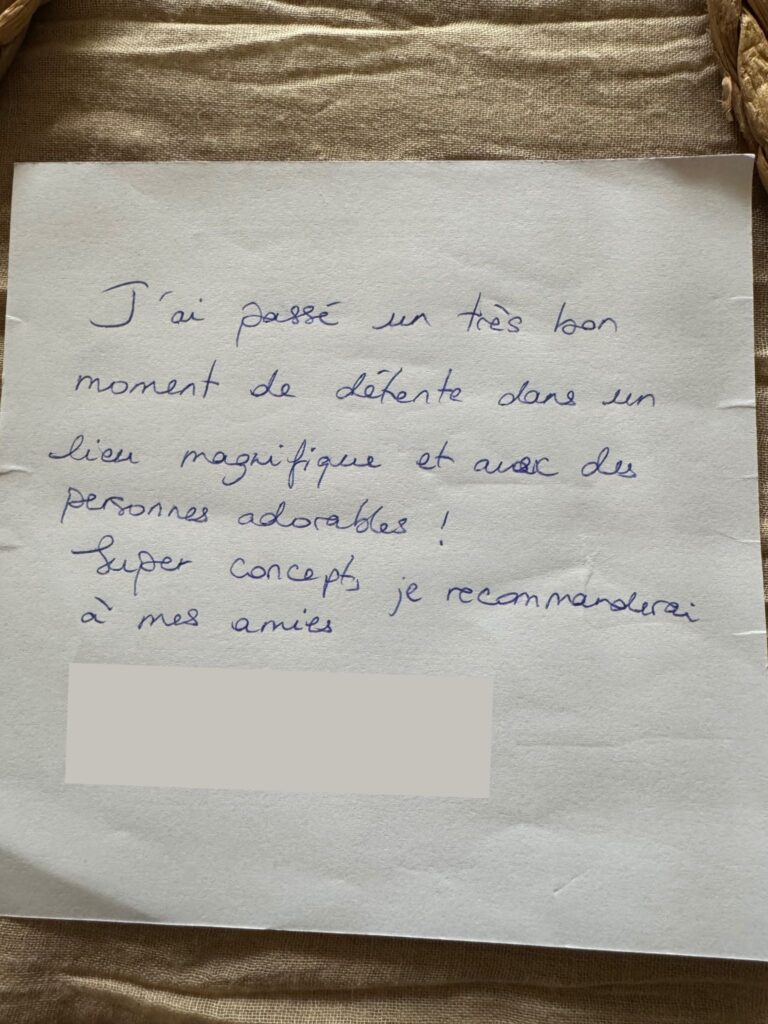 J'ai passé un très bon
moment de détente dans un
lieu magnifique et avec des
personnes adorables !
Super concept, je recommanderai
à mes amies